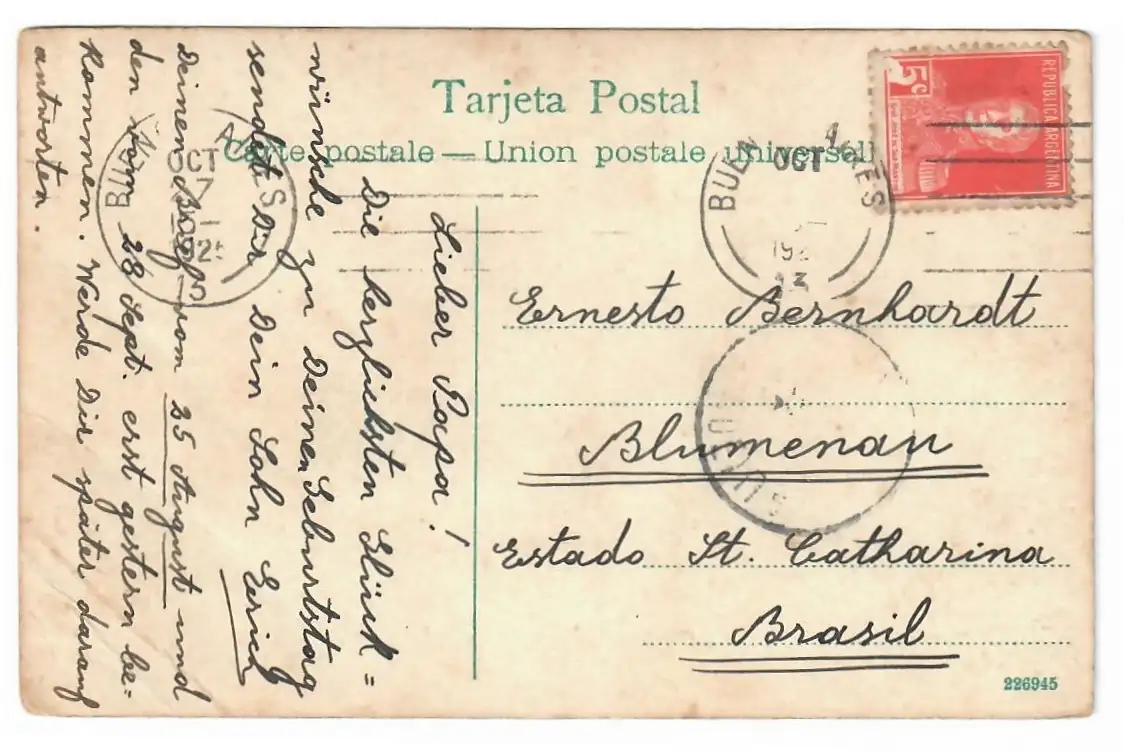 Tarjeta Postal
Carte postale — Union postale universelle
REPUBLICA ARGENTINA
5c
BUEN AIRES
OCT
192
13
BUEN AIRES
OCT
7
1
192
Lieber Papa!
Die herzlichsten Glück=
wünsche zu Deinen Geburtstag
sendet Dir Dein Sohn Erich
Deinen Brief vom 25 August und
den vom 28 Sept. erst gestern be=
kommen. Werde Dir später darauf
antworten.
Ernesto Bernhardt
Blumenau
Estado St. Catharina
Brasil
226945